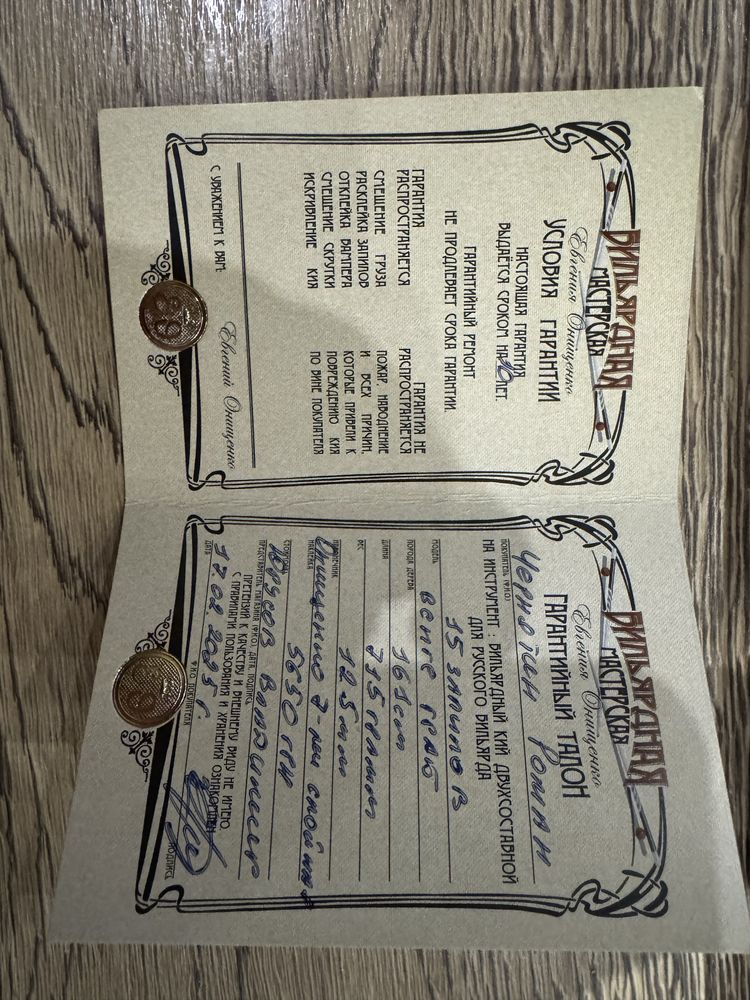 БИЛЬЯРДНАЯ
МАСТЕРСКАЯ
Евгения Онищенко
УСЛОВИЯ ГАРАНТИИ
НАСТОЯЩАЯ ГАРАНТИЯ
ВЫДАЁТСЯ СРОКОМ НА 10 ЛЕТ.
ГАРАНТИЙНЫЙ РЕМОНТ
НЕ ПРОДЛЕВАЕТ СРОКА ГАРАНТИИ.
ГАРАНТИЯ
РАСПРОСТРАНЯЕТСЯ
СМЕЩЕНИЕ ГРУЗА
РАСКЛЕЙКА ЗАПИЛОВ
ОТКЛЕЙКА БАМПЕРА
СМЕЩЕНИЕ СКРУТКИ
ИСКРИВЛЕНИЕ КИЯ
ГАРАНТИЯ НЕ
РАСПРОСТРАНЯЕТСЯ
ПОЖАР, НАВОДНЕНИЕ
И ВСЕХ ПРИЧИН,
КОТОРЫЕ ПРИВЕЛИ К
ПОВРЕЖДЕНИЮ КИЯ
ПО ВИНЕ ПОКУПАТЕЛЯ
С УВАЖЕНИЕМ К ВАМ:
Евгений Онищенко
БИЛЬЯРДНАЯ
МАСТЕРСКАЯ
Евгения Онищенко
ГАРАНТИЙНЫЙ ТАЛОН
Роман
ПОКУПАТЕЛЬ (ФИО)
НА ИНСТРУМЕНТ : БИЛЬЯРДНЫЙ КИЙ ДВУХСОСТАВНОЙ
ДЛЯ РУССКОГО БИЛЬЯРДА
15 запилов
МОДЕЛЬ
венге граб
ПОРОДА ДЕРЕВА
161 cm
ДЛИНА
715 грамм
ВЕС
12.5 mm
Онищенко 7-ми слойная
НАКЛЕЙКА
5650 грн
СТОИМОСТЬ
Владимир
ПРЕДСТАВИТЕЛЬ МАГАЗИНА (ФИО), ДАТА, ПОДПИСЬ
ПРЕТЕНЗИЙ К КАЧЕСТВУ И ВНЕШНЕМУ ВИДУ НЕ ИМЕЮ,
С ПРАВИЛАМИ ПОЛЬЗОВАНИЯ И ХРАНЕНИЯ ОЗНАКОМЛЕН
ДАТА
Ф.И.О. ПОКУПАТЕЛЯ
ПОДПИСЬ